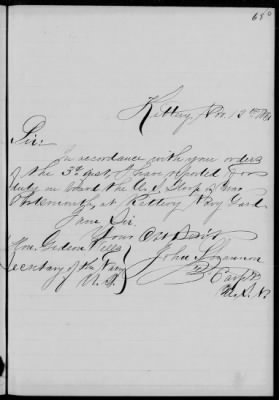 Kittery, Nov. 12th
Sir:
In accordance with your orders
of the 3d inst, I have reported for
duty on board the U.S. Sloop of War
Portsmouth, at Kittery Navy Yard
I am Sir,
Your Obt Servt
Hon. Gideon Welles
John
Secretary of the Navy
U.S.